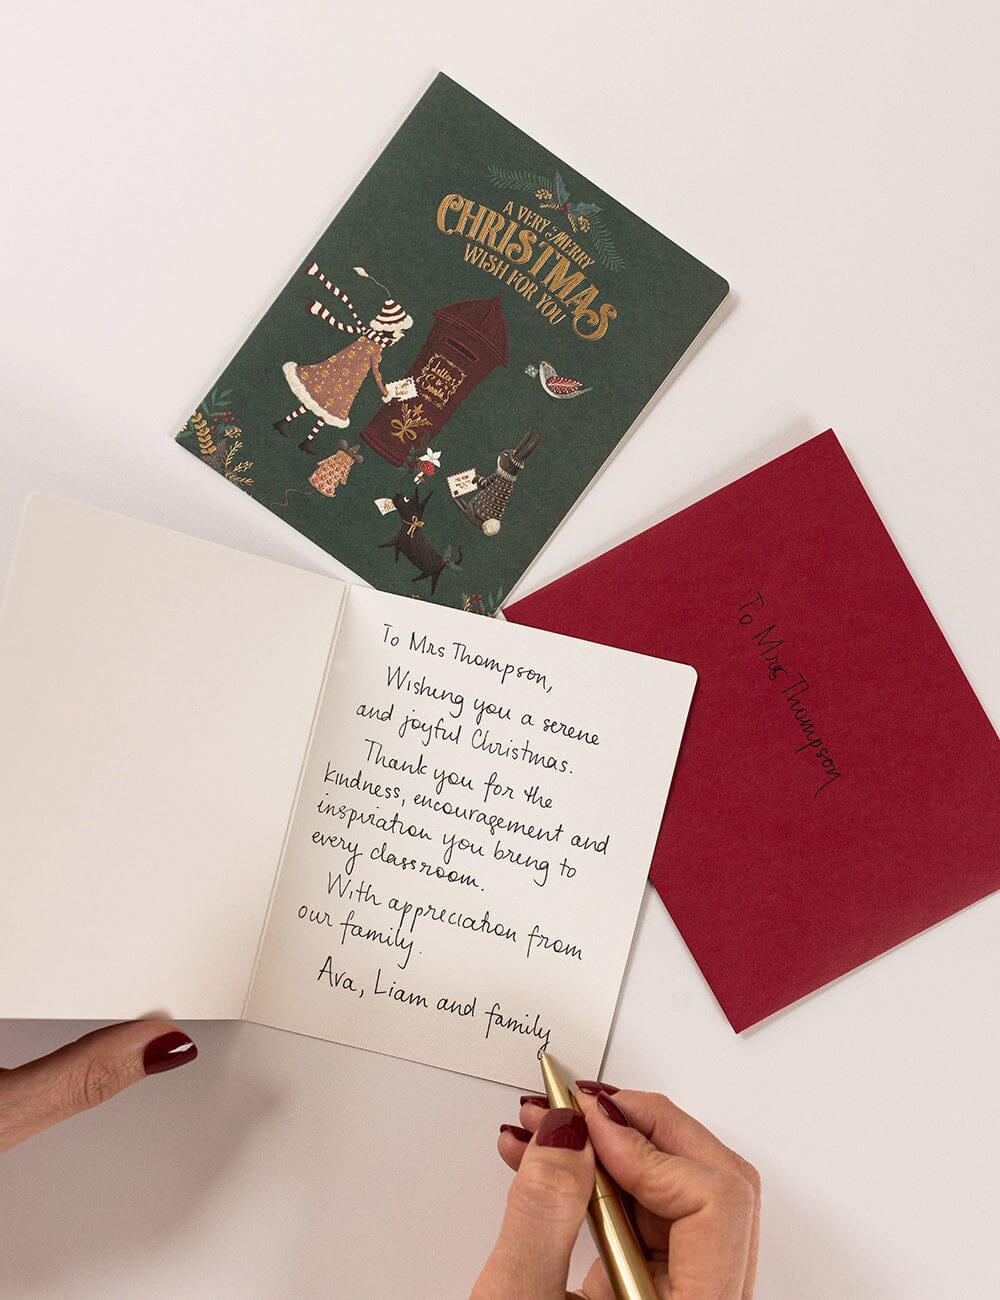 A VERY MERRY
CHRISTMAS
WISH FOR YOU
Letters
to
Santa
To Mrs Thompson
To Mrs Thompson,
Wishing you a serene
and joyful Christmas.
Thank you for the
kindness, encouragement and
inspiration you bring to
every classroom.
With appreciation from
our family.
Ava, Liam and family